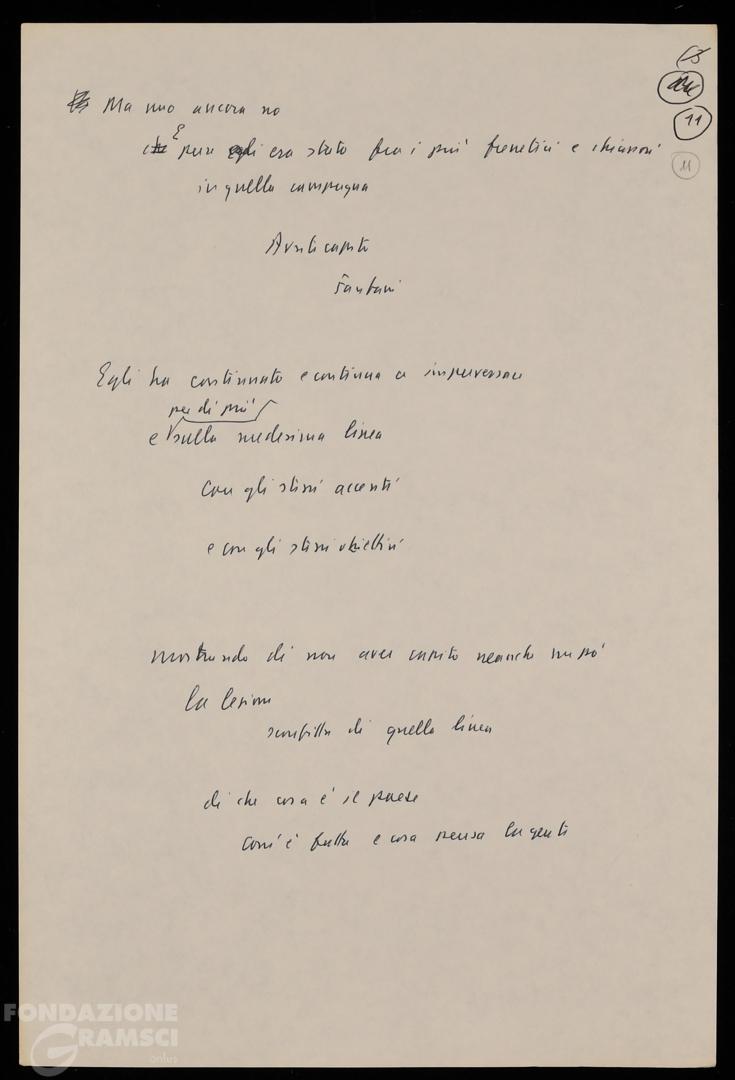 11
11
Ma uno ancora no
E pure egli era stato fra i più frenetici e chiassosi
in quella campagna
Avrete capito
Fanfani
Egli ha continuato e continua a imperversare
per di più
e sulla medesima linea
con gli stessi accenti
e con gli stessi obiettivi
mostrando di non aver capito neanche un po'
la lezione
sconfitta di quella linea
di che cosa è il paese
com'è fatto e cosa pensa la gente
FONDAZIONE
GRAMSCI
onlus